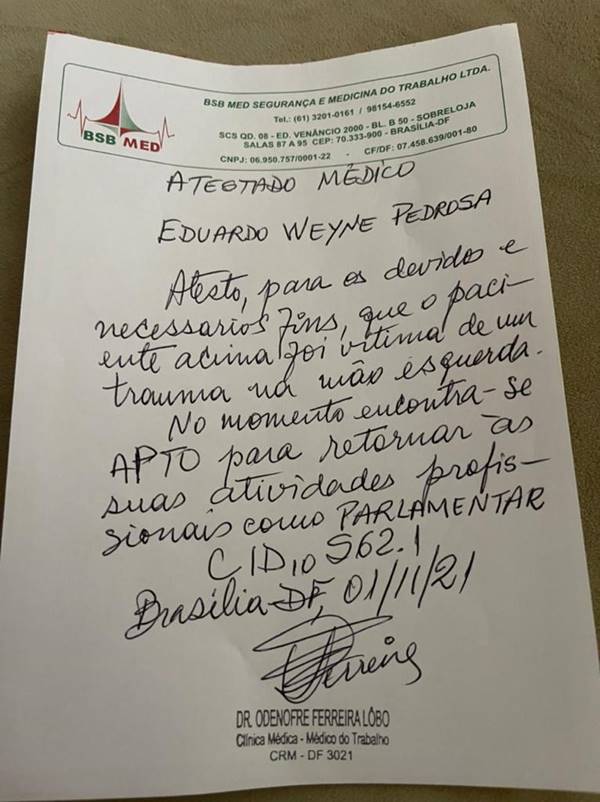 BSB MED
BSB MED SEGURANÇA E MEDICINA DO TRABALHO LTDA.
Tel.: (61) 3201-0161 / 98154-6552
SCS QD. 08 - ED. VENÂNCIO 2000 - BL. B 50 - SOBRELOJA
SALAS 87 A 95 CEP: 70.333-900 - BRASÍLIA-DF
CNPJ: 06.950.757/0001-22 - CF/DF: 07.458.639/001-80
ATESTADO MÉDICO
EDUARDO WEYNE PEDROSA
Atesto, para os devidos e
necessarios fins, que o paci-
ente acima foi vítima de um
trauma na mão esquerda.
No momento encontra-se
APTO para retornar às
suas atividades profis-
sionais como PARLAMENTAR
CID10 S62.1
Brasília-DF, 01/11/21
Ferreira
DR. ODENOFRE FERREIRA LÔBO
Clínica Médica - Médico do Trabalho
CRM - DF 3021